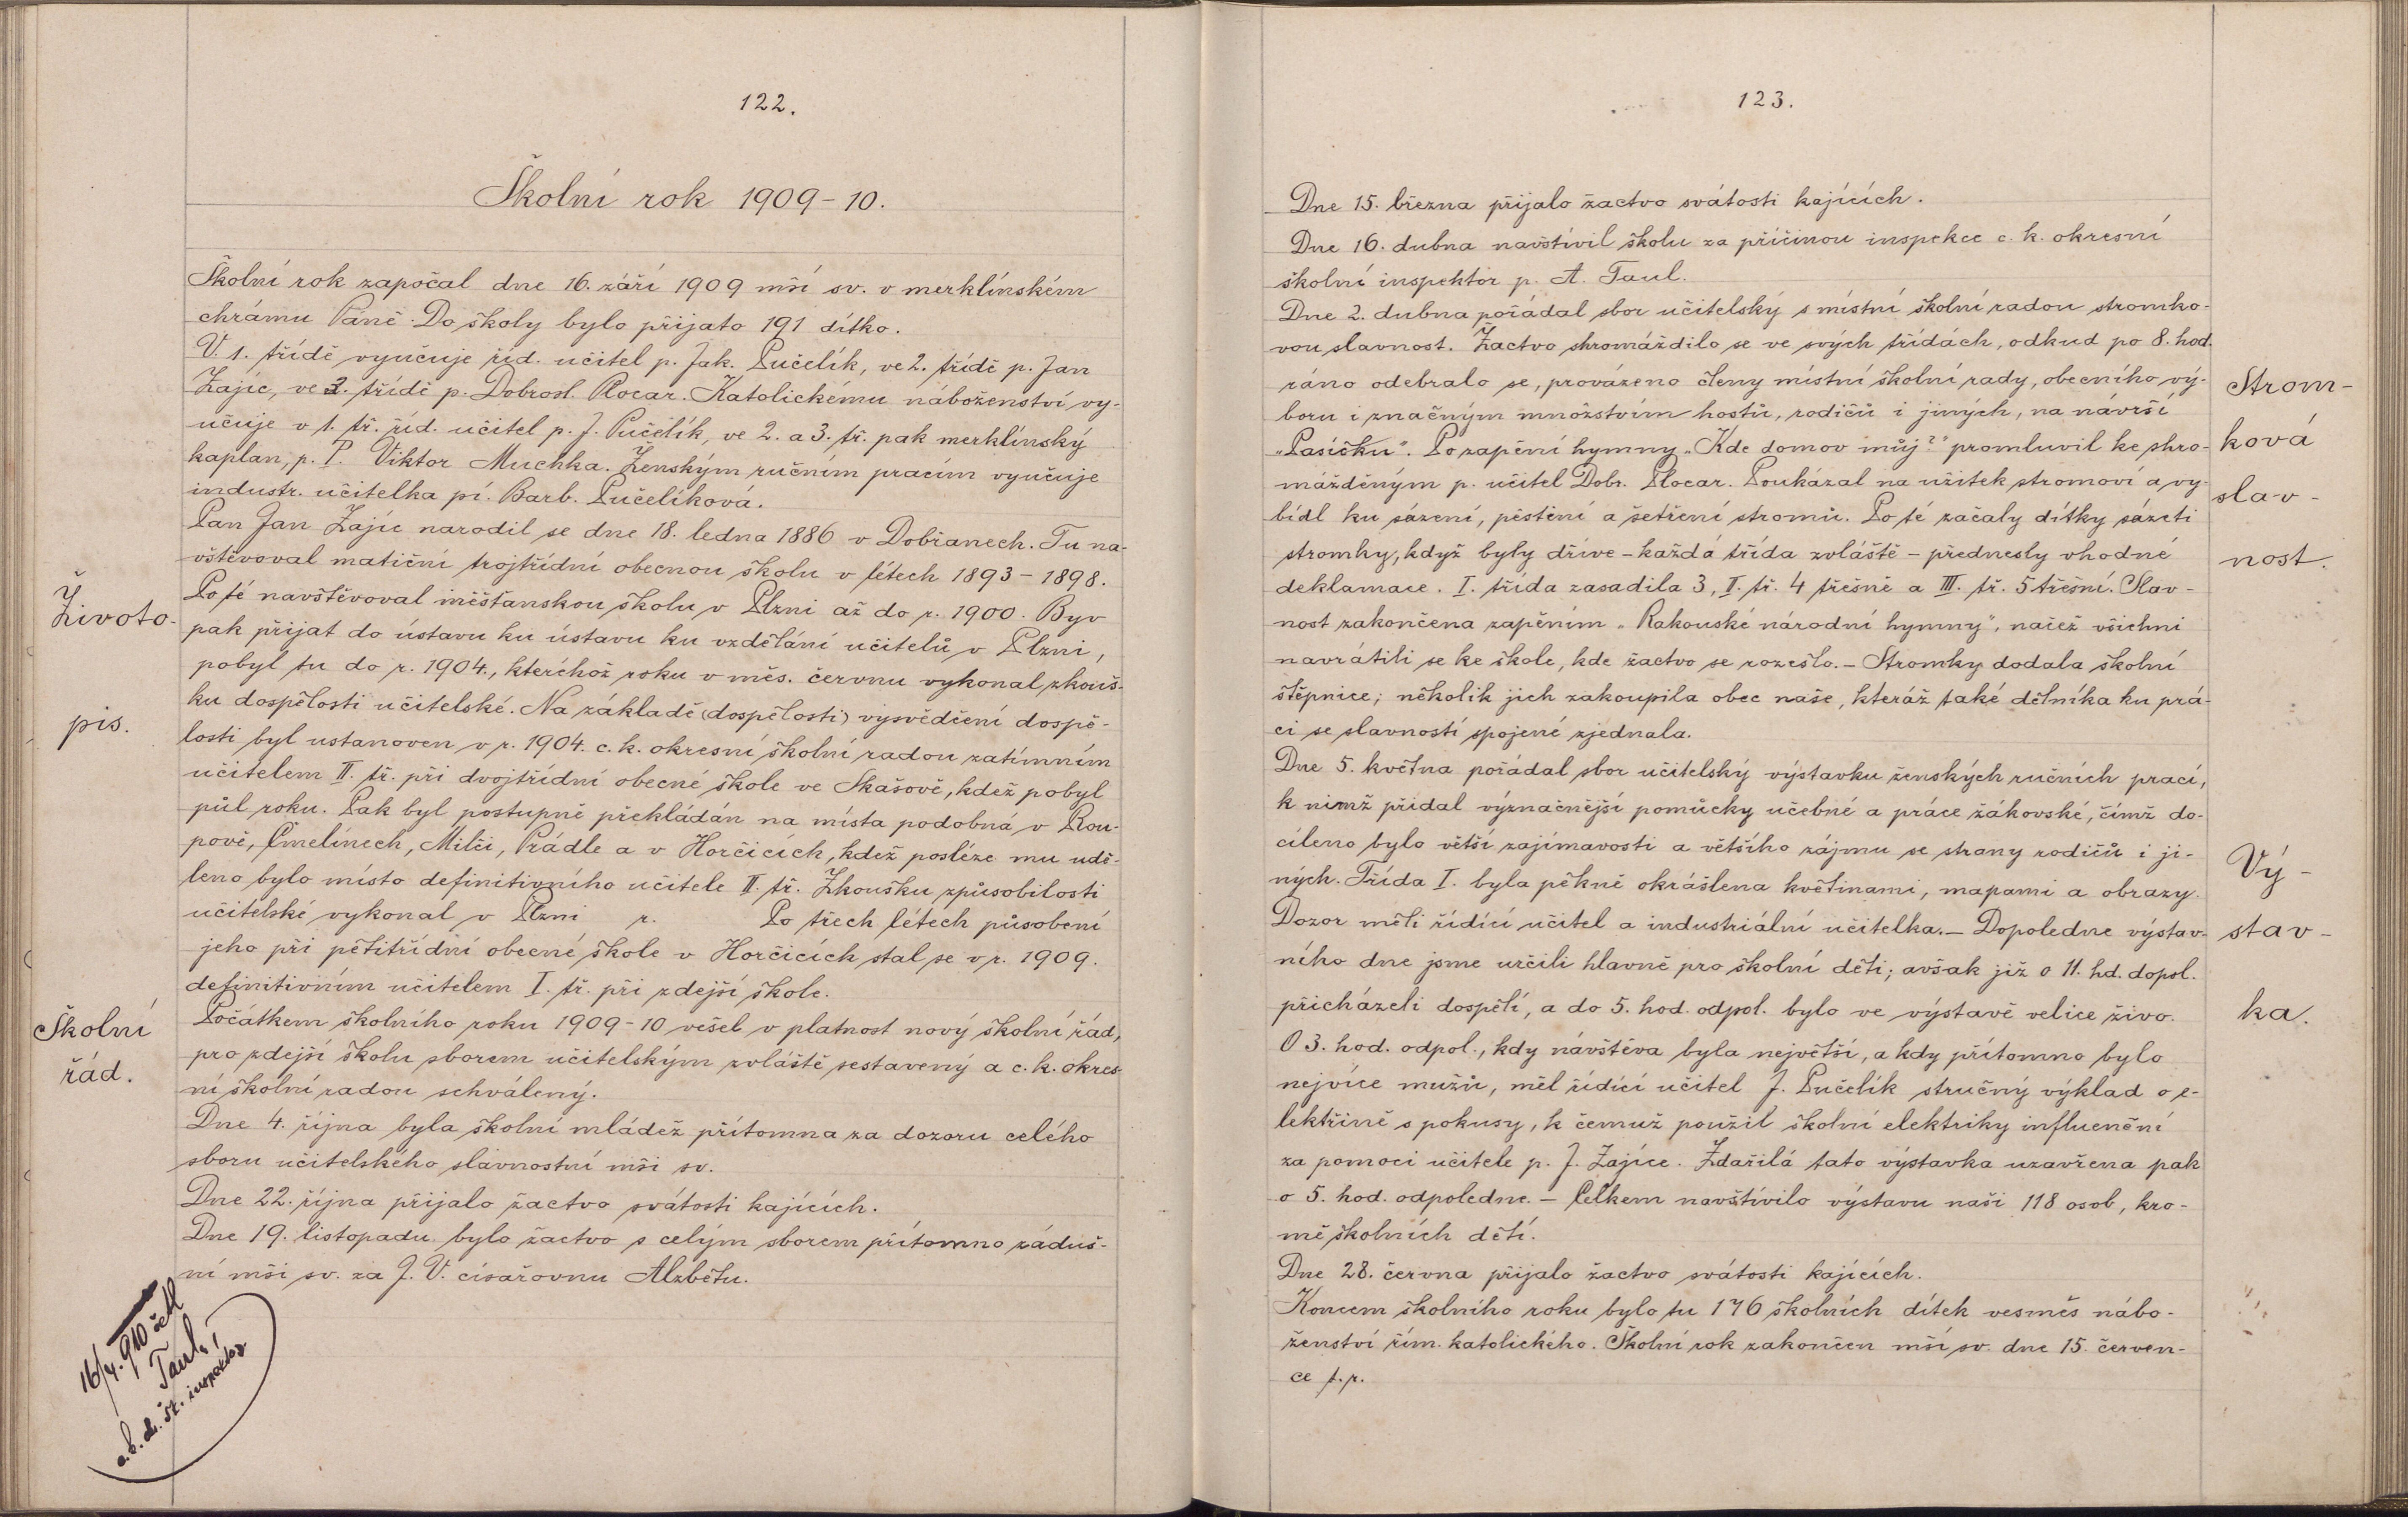 122.
Školní rok 1909-10.
Školní rok započal dne 16. září 1909 mší sv. v merklínském
chrámu Páně. Do školy bylo přijato 191 dítko.
V. 1. třídě vyučuje říd. učitel p. Jak. Pučelík, ve 2. třídě p. Jan
Zajíc, ve 3. třídě p. Dobrosl. Plocar. Katolickému náboženství vy-
učuje v 1. tř. říd. učitel p. J. Pučelík, ve 2. a 3. tř. pak merklínský
kaplan, p. P. Viktor Muchka. Ženským ručním pracím vyučuje
industr. učitelka pí. Barb. Pučelíková.
Pan Jan Zajíc narodil se dne 18. ledna 1886 v Dobřanech. Tu na-
vštěvoval matiční trojtřídní obecnou školu v létech 1893-1898.
Po té navštěvoval měšťanskou školu v Plzni až do r. 1900. Byv
pak přijat do ústavu ku ústavu ku vzdělání učitelů v Plzni,
pobyl tu do r. 1904., kteréhož roku v měs. červnu vykonal zkouš-
ku dospělosti učitelské. Na základě (dospělosti) vysvědčení dospě-
losti byl ustanoven v r. 1904. c. k. okresní školní radou zatímním
učitelem II. tř. při dvojtřídní obecné škole ve Skašově, kdež pobyl
půl roku. Pak byl postupně překládán na místa podobná v Rou-
pově, Čmelínech, Milči, Prádle a v Horčicích, kdež posléze mu udě-
leno bylo místo definitivního učitele II. tř. Zkoušku způsobilosti
učitelské vykonal v Plzni r. Po třech létech působení
jeho při pětitřídní obecné škole v Horčicích stal se v r. 1909.
definitivním učitelem I. tř. při zdejší škole.
Počátkem školního roku 1909-10 vešel v platnost nový školní řád,
pro zdejší školu sborem učitelským zvláště sestavený a c. k. okres-
ní školní radou schválený.
Dne 4. října byla školní mládež přítomna za dozoru celého
sboru učitelského slavnostní mši sv.
Dne 22. října přijalo žactvo svátosti kajících.
Dne 19. listopadu bylo žactvo s celým sborem přítomno záduš-
ní mši sv. za J. V. císařovnu Alzbětu.
Životo-
pis.
Školní
řád.
16/4. 910 četl
Taul,
c. k. okr. šk. inspektor
123.
Dne 15. března přijalo žactvo svátosti kajících.
Dne 16. dubna navštívil školu za příčinou inspekce c. k. okresní
školní inspektor p. A. Taul.
Dne 2. dubna pořádal sbor učitelský s místní školní radou stromko-
vou slavnost. Žactvo shromáždilo se ve svých třídách, odkud po 8. hod.
ráno odebralo se, provázeno členy místní školní rady, obecního vý-
boru i značným množstvím hostů, rodičů i jiných, na návrší
„Pasičku". Po zapění hymny „Kde domov můj?" promluvil ke shro-
mážděným p. učitel Dobr. Plocar. Poukázal na užitek stromoví a vy-
bídl ku sázení, pěstění a šetření stromů. Po té začaly dítky sázeti
stromky, když byly dříve - každá třída zvláště - přednesly vhodné
deklamace. I. třída zasadila 3, II. tř. 4 třešně a III. tř. 5 třešní. Slav-
nost zakončena zapěním „Rakouské národní hymny", načež všichni
navrátili se ke škole, kde žactvo se rozešlo. - Stromky dodala školní
štěpnice; několik jich zakoupila obec naše, kteráž také dělníka ku prá-
ci se slavností spojené zjednala.
Dne 5. května pořádal sbor učitelský výstavku ženských ručních prací,
k nimž přidal význačnější pomůcky učebné a práce žákovské, čímž do-
cíleno bylo větší zajímavosti a většího zájmu se strany rodičů i ji-
ných. Třída I. byla pěkně okrášlena květinami, mapami a obrazy.
Dozor měli řídící učitel a industriální učitelka. - Dopoledne výstav-
ního dne jsme určili hlavně pro školní děti; avšak již o 11. hd. dopol.
přicházeli dospělí, a do 5. hod. odpol. bylo ve výstavě velice živo.
O 3. hod. odpol., kdy návštěva byla největší, a kdy přítomno bylo
nejvíce mužů, měl řídící učitel J. Pučelík stručný výklad o e-
lektřině s pokusy, k čemuž použil školní elektriky influenční
za pomoci učitele p. J. Zajíce. Zdařilá tato výstavka uzavřena pak
o 5. hod. odpoledne. - Celkem navštívilo výstavu naši 118 osob, kro-
mě školních dětí.
Dne 28. června přijalo žactvo svátosti kajících.
Koncem školního roku bylo tu 176 školních dítek vesměs nábo-
ženství řím. katolického. Školní rok zakončen mší sv. dne 15. červen-
ce t. r.
Strom-
ková
slav-
nost.
Vý-
stav-
ka.